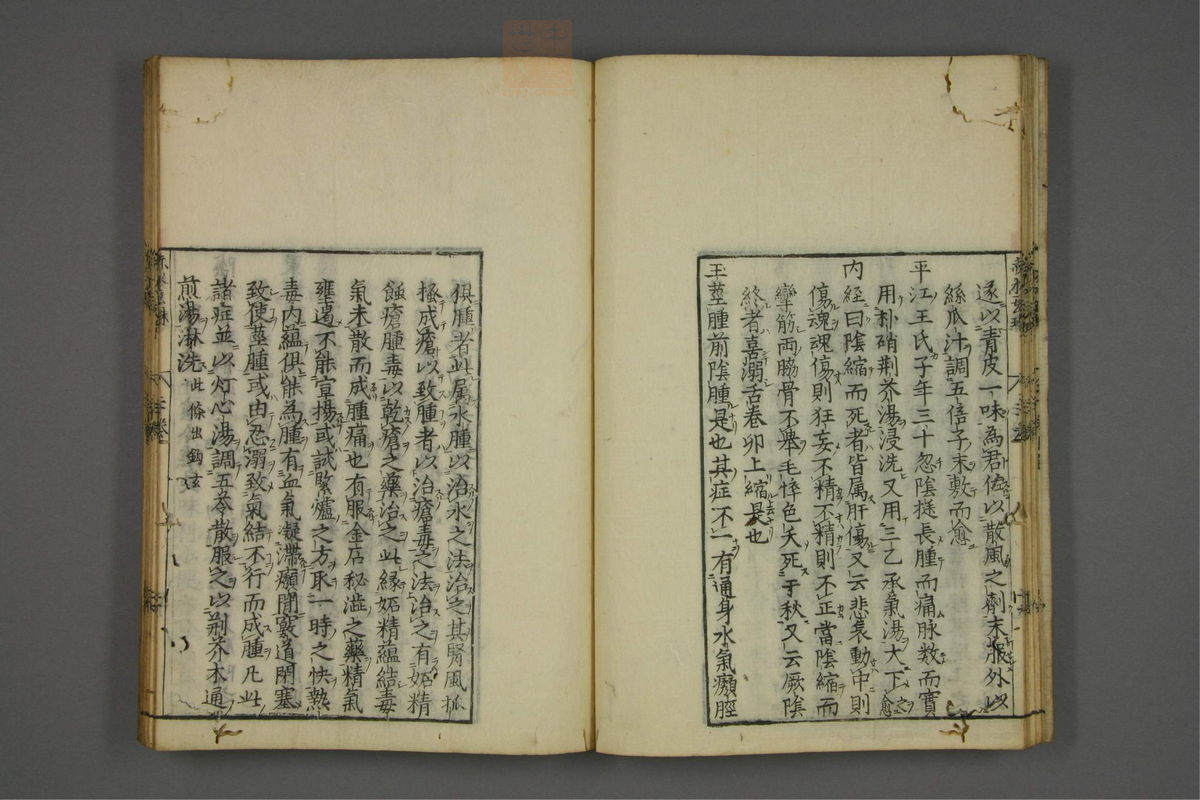 遂以青皮一味為君佐以散風之劑末服外以
絲瓜汁調五倍子末敷而愈
平江王氏子年三十忽陰挺長腫而痛脉数而實
用朴硝荆芥湯浸洗又用三乙承氣湯大下愈
内経曰陰縮而死者皆属肝傷又云悲哀動中則
傷魂魂傷則狂妄不精不精則不正當陰縮而
攣筋両脇骨不舉毛悴色夭死于秋又云厥陰
終者喜溺舌卷卵上縮是也
玉莖腫前陰腫是也其症不一有通身水氣癩脛
俱腫者此属水腫以治水之法治之其腎風抓
搔成瘡以致腫者以治瘡毒之法治之有妬精
蝕瘡腫毒以乾瘡之藥治之此縁妬精蘊結毒
氣未散而成腫痛也有服金石秘澁之藥精氣
壅遏不能宣揚或試爐之方取一時之快熱
毒内蘊俱能為腫有血氣凝滞癩閉竅道閉塞
致使莖腫或由忍溺致氣結不行而成腫凡此
諸症並以灯心湯調五苓散服之以荆芥木通
煎湯淋洗此條出鈎玄